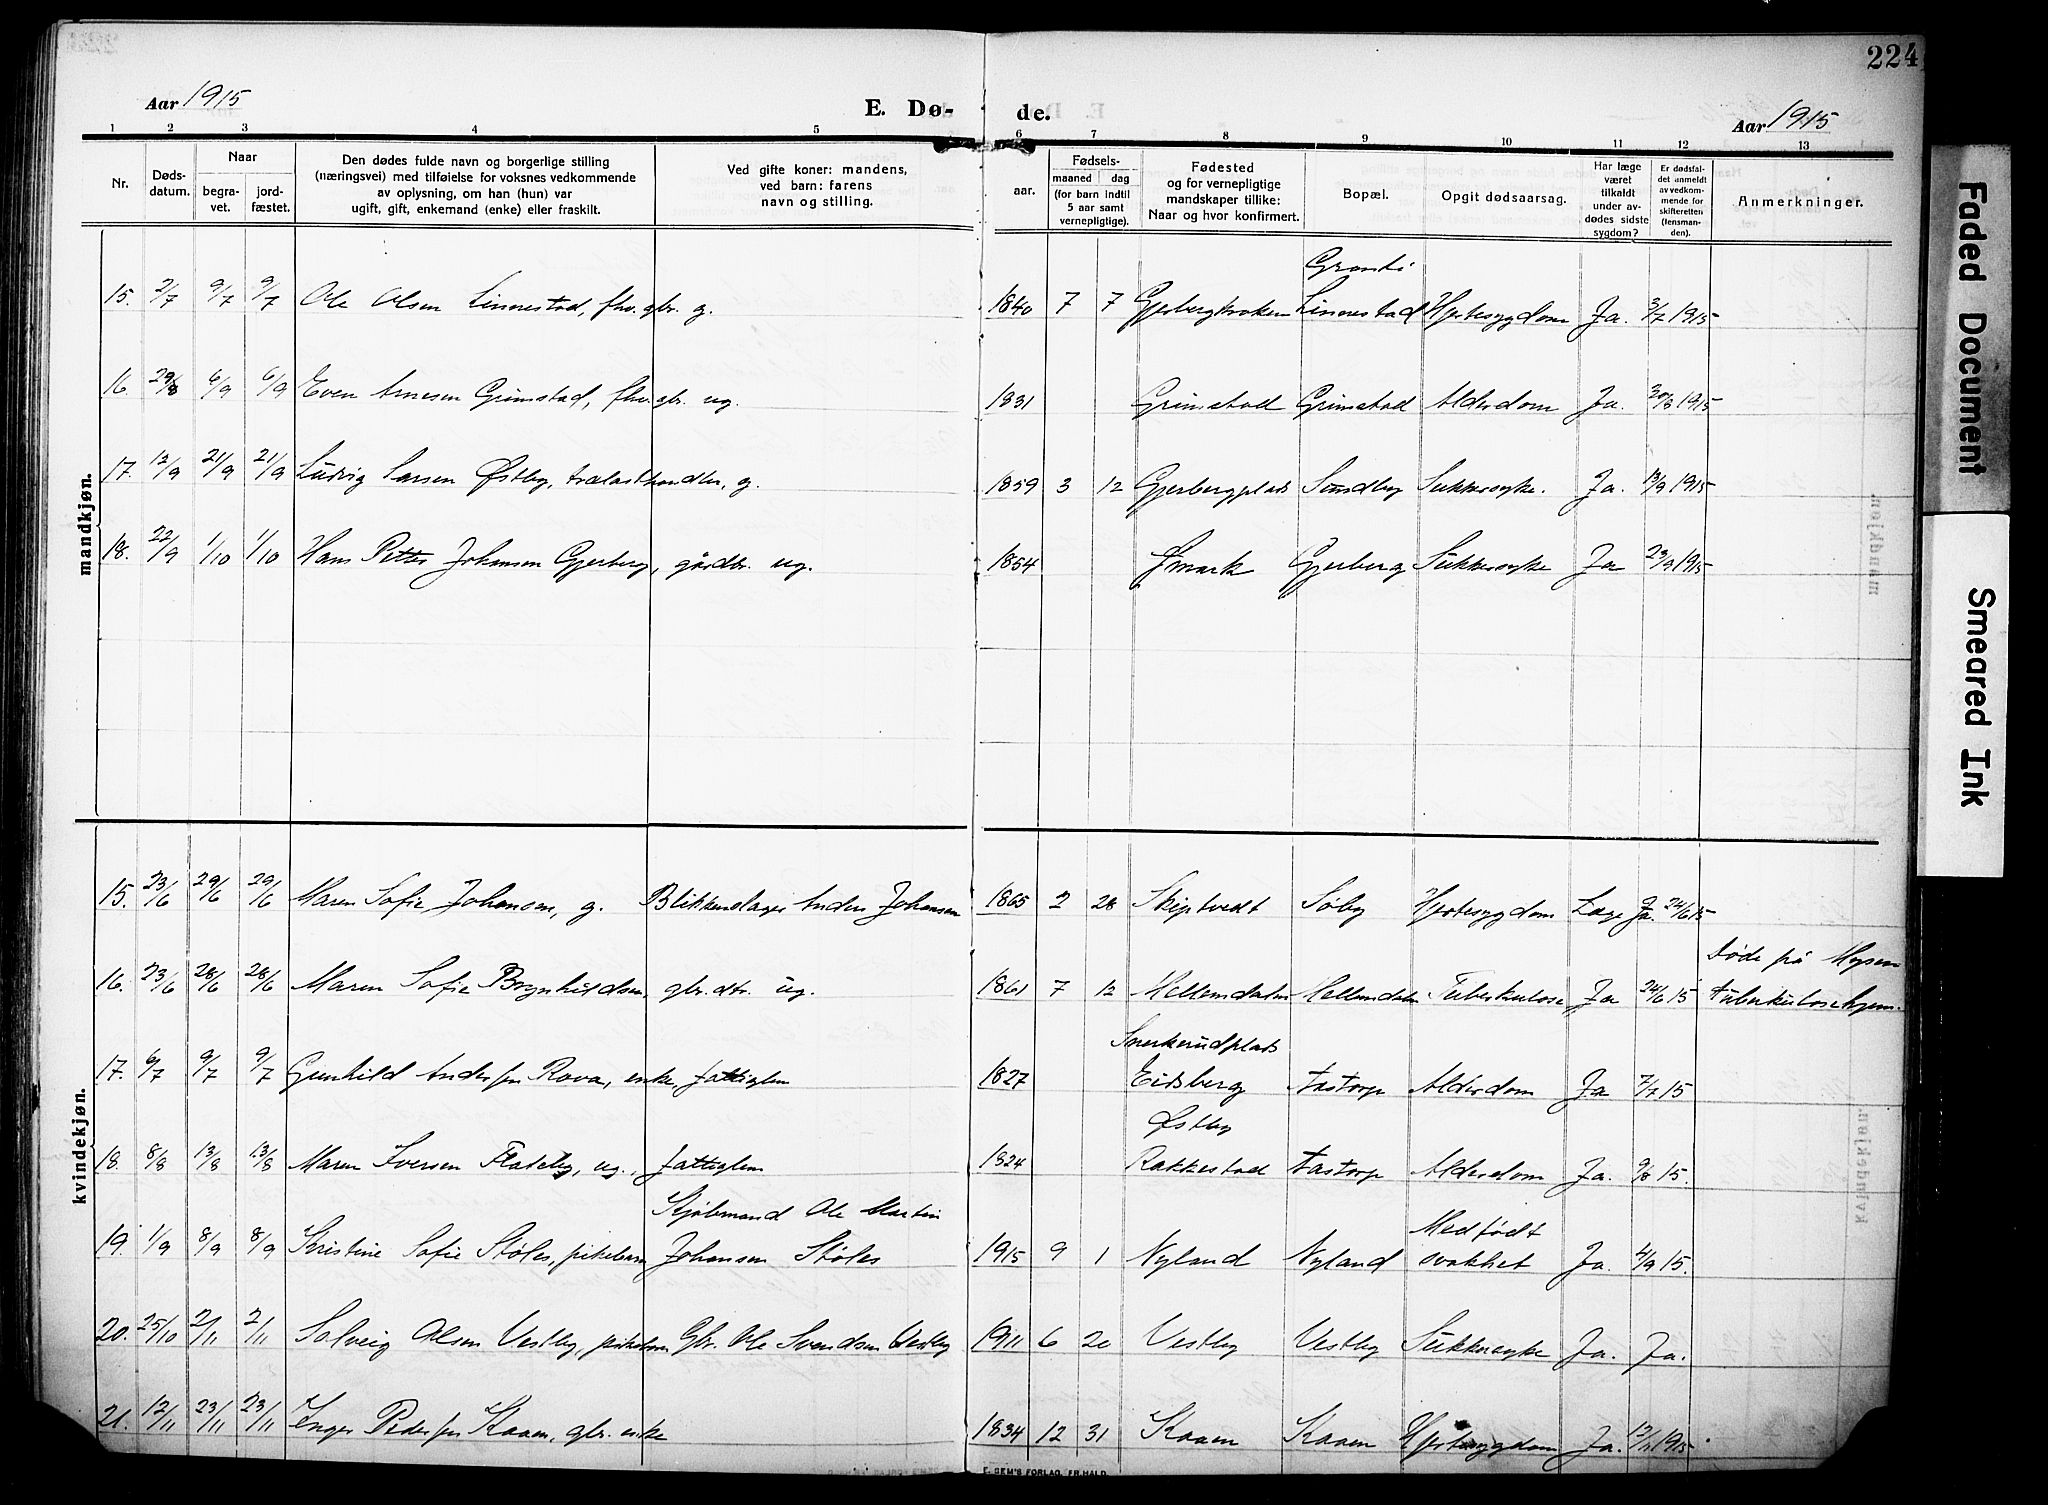 224
Aar 1915
E. Dø-
de.
Aar 1915
1 2 3 4 5 6 7 8 9 10 11 12 13
Nr.
Døds-
datum.
Naar
begra-
vet.
jord-
fæstet.
Den dødes fulde navn og borgerlige stilling
(næringsvei) med tilføielse for voksnes vedkommende
av oplysning, om han (hun) var
ugift, gift, enkemand (enke) eller fraskilt.
Ved gifte koner: mandens,
ved barn: farens
navn og stilling.
Fødsels-
aar.
maaned dag
(for barn indtil
5 aar samt
vernepligtige).
Fødested
og for vernepligtige
mandskaper tillike:
Naar og hvor konfirmert.
Bopæl.
Opgit dødsaarsag.
Har læge
været
tilkaldt
under av-
dødes sidste
sygdom?
Er dødsfal-
det anmeldt
av vedkom-
mende for
skifteretten
(lensman-
den).
Anmerkninger.
mandkjøn.
15. 2/7 9/7 9/7 Ole Olsen Linnestad, fhv. gbr. g. 1840 7 7 Gjerbergkroken Linnestad Hjertesygdom Ja. 3/7 1915
16. 29/8 6/9 6/9 Even Arnesen Grimstad, fhv. gbr. ug. 1831 Grimstad Grimstad Alderdom Ja. 30/8 1915
17. 12/9 21/9 21/9 Ludvig Larsen Østby, trælasthandler, g. 1859 3 12 Gjerbergplads Sundby Sukkersyke. Ja. 13/9 1915
18. 22/9 1/10 1/10 Hans Petter Johansen Gjerberg, gårdbr. ug. 1854 Ømark Gjerberg Sukkersyke Ja 23/9 1915
kvindekjøn.
15. 23/6 29/6 29/6 Maren Sofie Johansen, g. Blikkenslager Anders Johansen 1865 2 28 Skiptvedt Søby Hjertesygdom Læge Ja. 24/6 15
Døde på Mysen
16. 23/6 28/6 28/6 Maren Sofie Brynhildsen, gbr.dtr. ug. 1861 7 12 Mellemdalen Mellemdalen Tuberkulose Ja 24/6 15 tuberkulosehjem.
Snerkerudplads
17. 6/7 9/7 9/7 Gunhild Andersen Rova, enke, fattiglem 1827 Eidsberg Aastorp Alderdom Ja 7/7 15
Østby
18. 8/8 13/8 13/8 Maren Iversen Flateby, ug., fattiglem 1824 Rakkestad Aastorp Alderdom Ja. 9/8 15.
Kjøbmand Ole Martin
Medfødt
19. 1/9 8/9 8/9 Kristine Sofie Støles, pikebarn Johansen Støles 1915 9 1 Nyland Nyland svakhet Ja. 4/9 15.
20. 25/10 2/11 2/11 Solveig Olsen Vestby, pikebarn Gbr. Ole Svendsen Vestby 1911 6 20 Vestby Vestby Sukkersyke Ja. Ja.
21. 12/11 23/11 23/11 Inger Pedersen Kaaen, gbr. enke 1834 12 31 Kaaen Kaaen Hjertesygdom Ja. 12/11 1915.
E. SEM'S FORLAG, FR.HALD
Faded Document
Smeared Ink